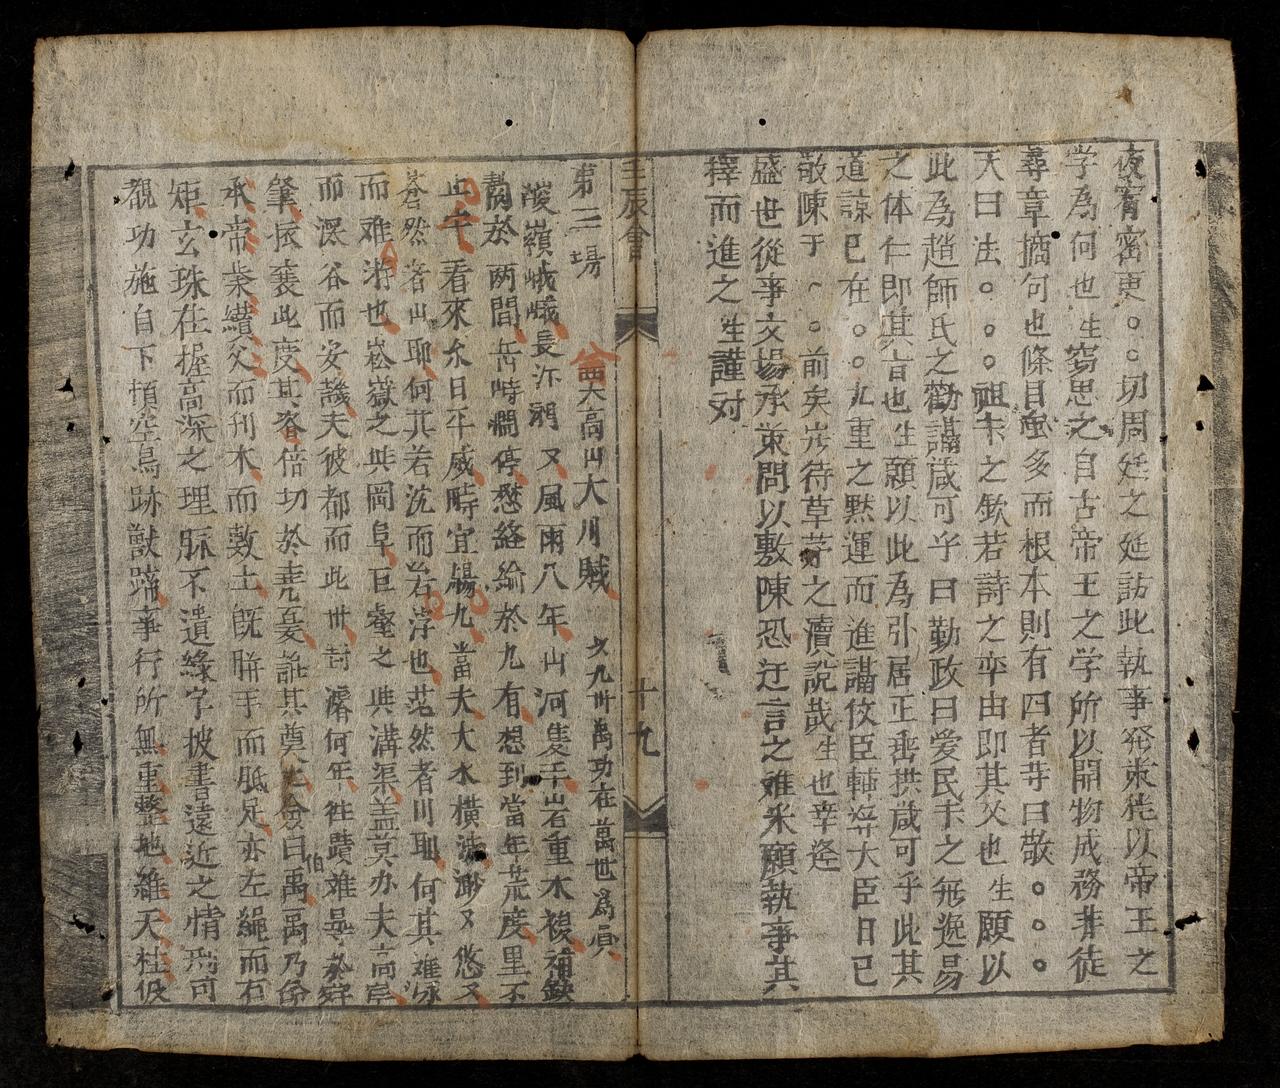 夜宵密更。。切周廷之廷訪此執事発策秪以帝王之
学為何也生窃思之自古帝王之学所以開物成務非徒
尋章摘句也條目虽多而根本則有四者苛曰敬。。。
天曰法。。。祖宗之欽若詩之率由即其父也生願以
此為趙師氏之勸講箴可乎曰勤政曰爱民手之無逸易
之体仁即其言也生願以此為引居正垂拱箴可乎此其
道諒已在。。九重之黙運而進講伩臣輔弼大臣日已
敬陳于。。前矣岂待草茅之瀆說哉生也幸逢
盛世從事文場承策問以敷陳恐迂言之难采願執事其
釋而進之生謹对
壬辰會
十九
第三場
大高山大川賦 以九世禹功在萬世為原
峻嶺峨峨長江㶁㶁又風雨八年山河隻千岩重木複補缺
島於两間岳峙瀾停愁絡綸於九有想到當年荒度里不
止辛看來尒日平成時宜賜九當夫大水横流渺又悠又
莽然者山耶何其若沈而若浮也茫然者川耶何其难泳
而难游也崧嶽之共岡阜巨壑之與溝渠盖莫办夫高岸
而深谷而安議夫彼都而此丗封濬何年徃蹟难尋於
肇振襄此度其咨倍切於堯憂誰其奠之僉曰伯禹禹乃
承帝業纘父而刋木而敷土旣胼手而胝足亦左繩而右
矩玄珠在握高深之理脉不遺綠字披書遠近之情形可
覩功施自下頓空鳥跡獸蹄事行所無重整地維天柱